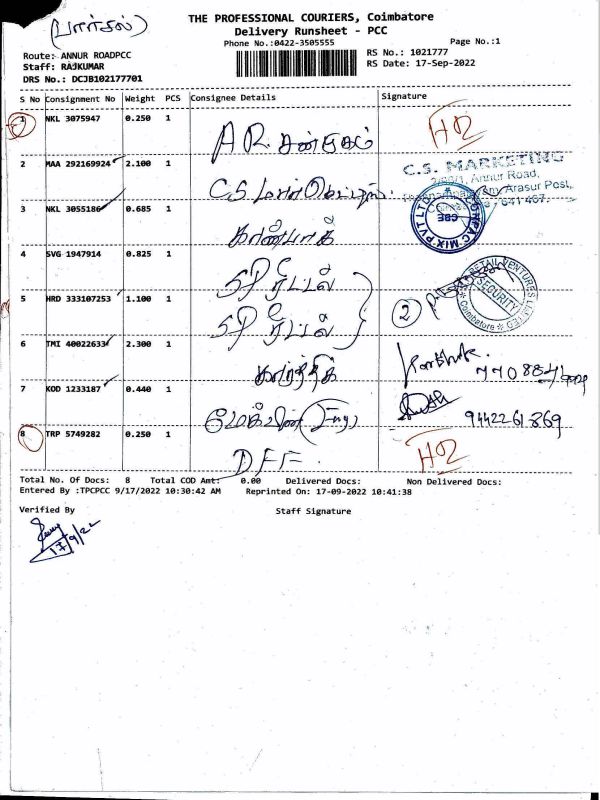 (பார்சல்)
THE PROFESSIONAL COURIERS, Coimbatore
Delivery Runsheet - PCC
Phone No.:0422-3505555 Page No.:1
Route: ANNUR ROADPCC RS No.: 1021777
Staff: RAJKUMAR RS Date: 17-Sep-2022
DRS No.: DCJB102177701
S No Consignment No Weight PCS Consignee Details Signature
1 NKL 3075947 0.250 1 A.R. சண்முகம் HQ
2 MAA 292169924 2.100 1 C.S. மார்கெட்டிங் C.S. MARKETING
Annur Road,
Arasur Post,
641 407.
3 NKL 3055186 0.685 1 காண்பாக் CONPAC MIX PVT LTD CBE
4 SVG 1947914 0.825 1 SP ரீட்டல்
5 HRD 333107253 1.100 1 SP ரீட்டல் 2 RETAIL VENTURES LIMITED SECURITY Coimbatore
6 TMI 40022633 2.300 1 கார்த்திக் Karthik
7 KOD 1233187 0.440 1 (Eng) 9442261869
8 TRP 5749282 0.250 1 DFF. HQ
Total No. Of Docs: 8 Total COD Amt: 0.00 Delivered Docs: Non Delivered Docs:
Entered By :TPCPCC 9/17/2022 10:30:42 AM Reprinted On: 17-09-2022 10:41:38
Verified By Staff Signature
17/9/22